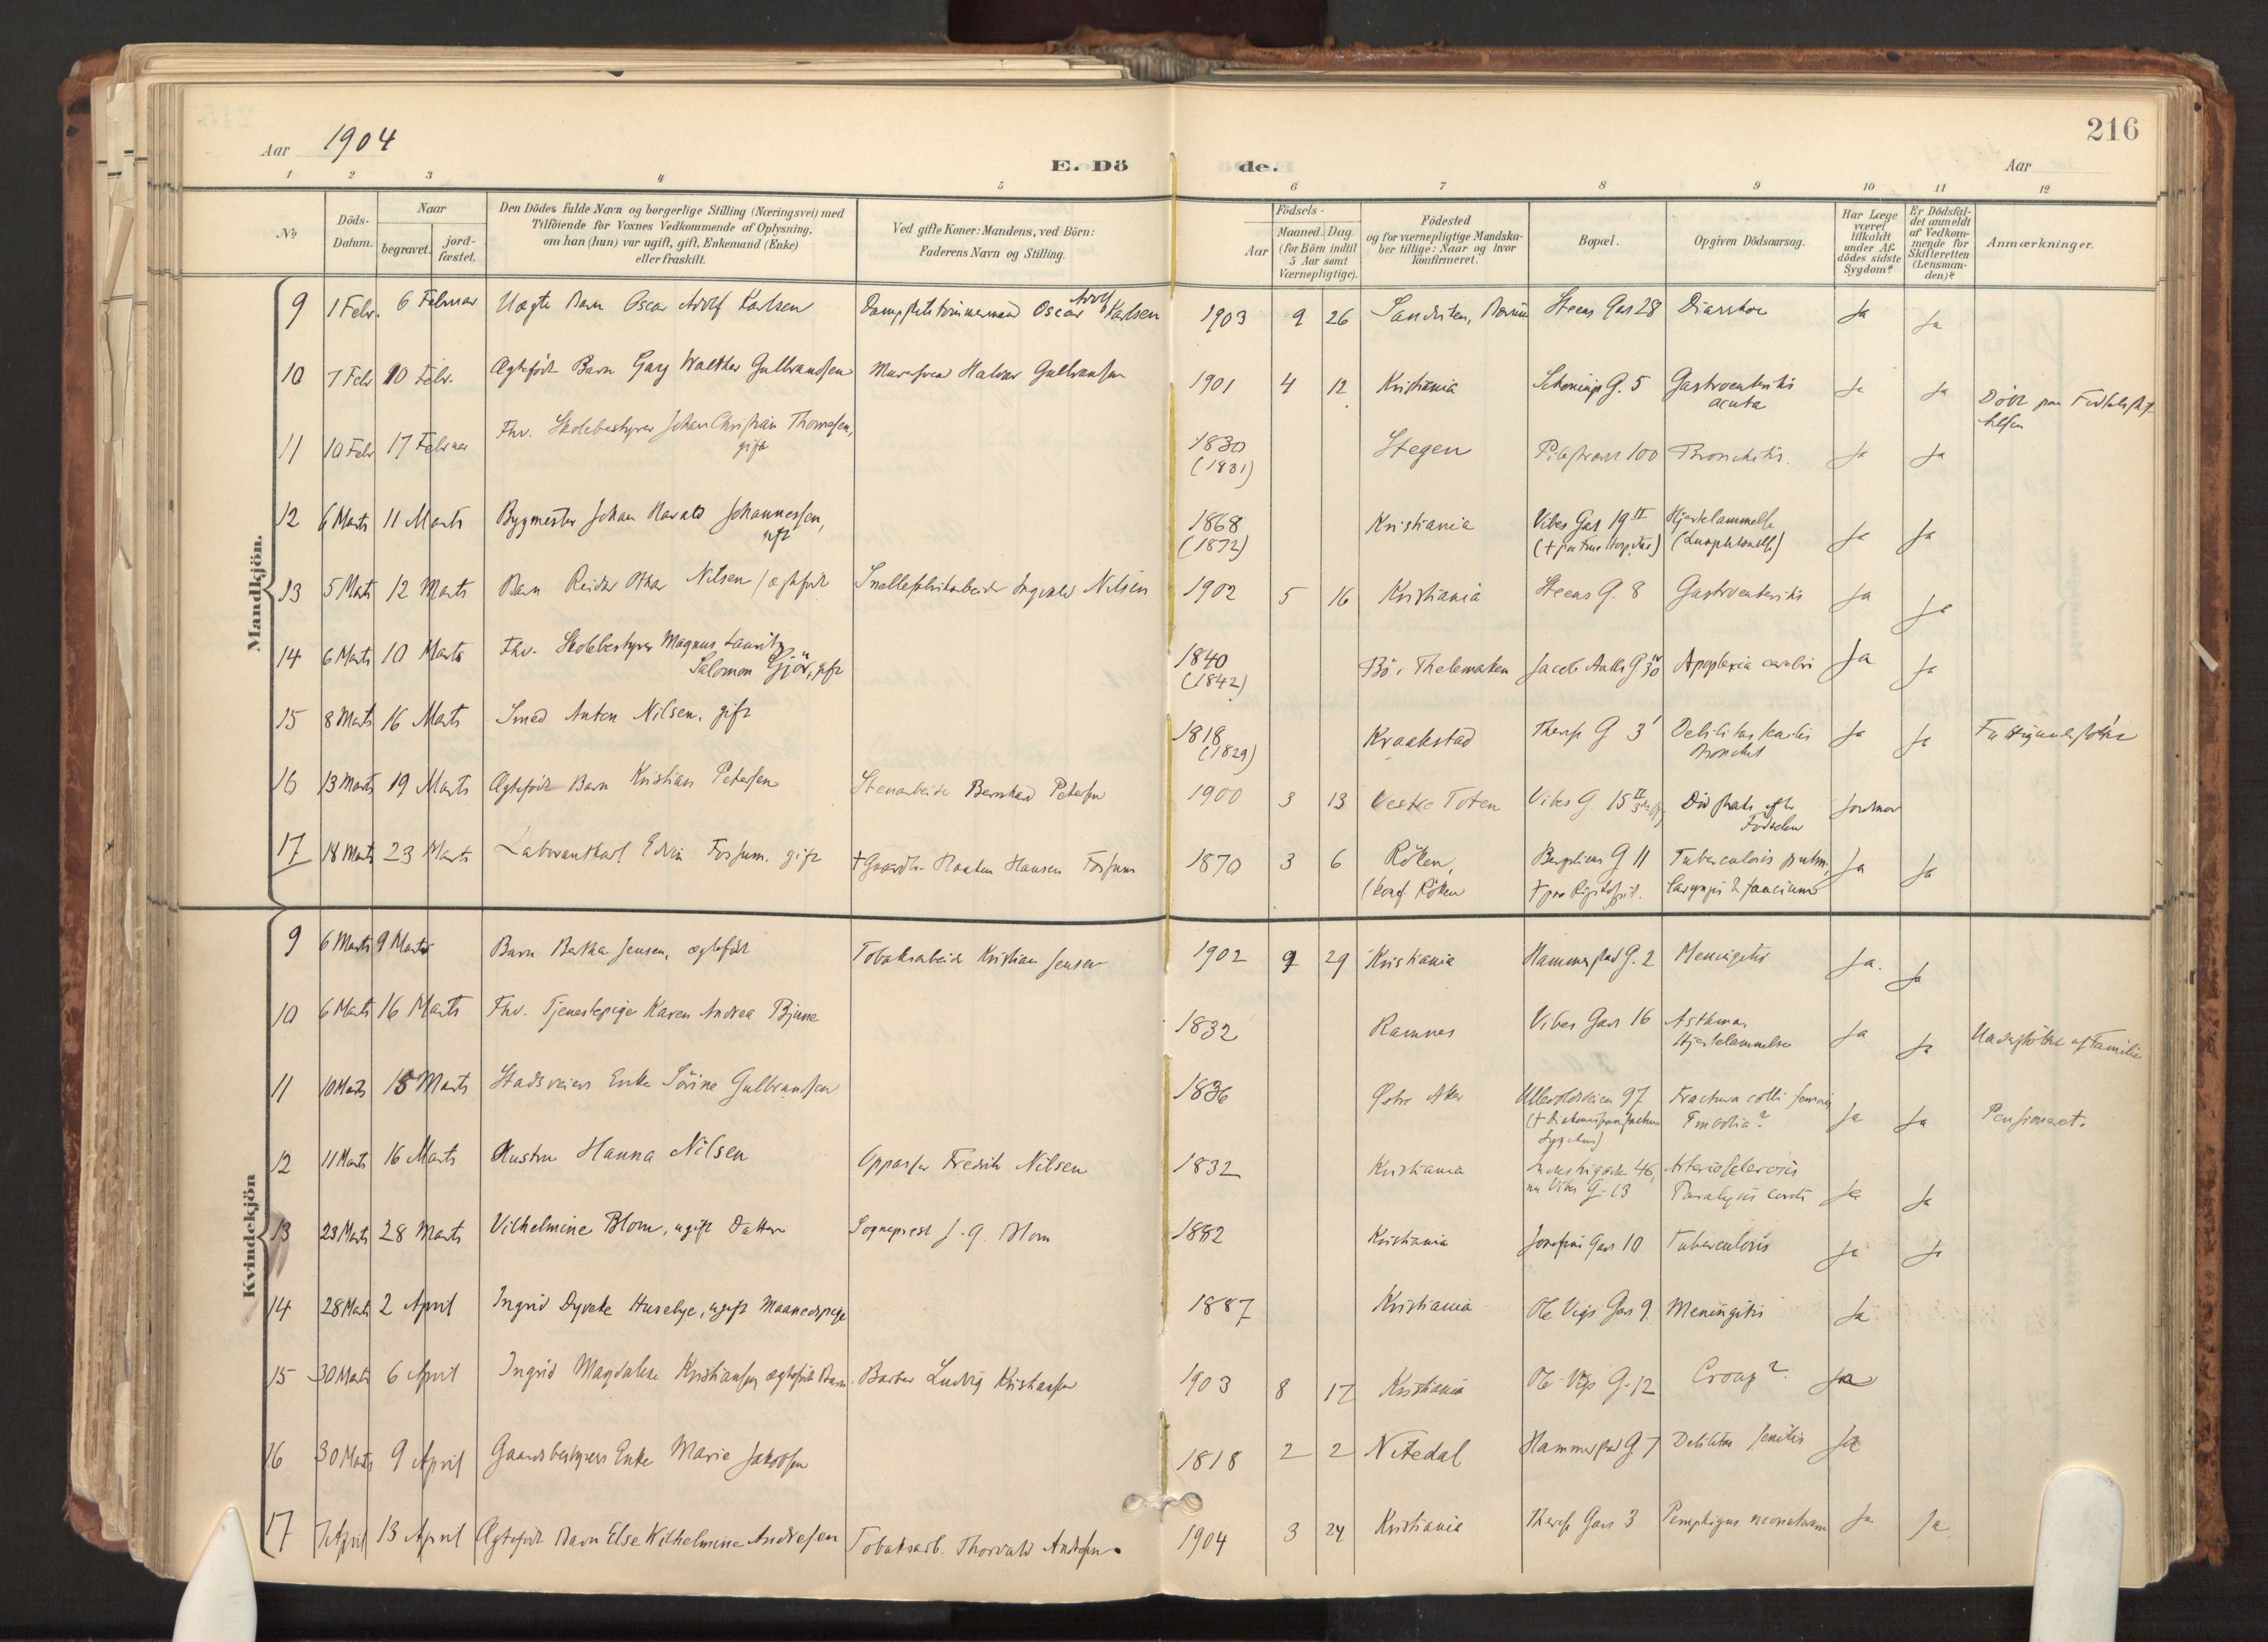 216
Aar 1904
E. Döde.
Aar
1 2 3 4 5 6 7 8 9 10 11 12
No
Döds-Datum.
Naar
begravet.
jord-fæstet.
Den Dödes fulde Navn og borgerlige Stilling (Næringsvei) med
Tilföiende for Voxnes Vedkommende af Oplysning,
om han (hun) var ugift, gift, Enkemand (Enke)
eller fraskilt.
Ved gifte Koner: Mandens, ved Börn:
Faderens Navn og Stilling.
Födsels-
Aar
Maaned. Dag.
(for Börn indtil
5 Aar samt
Værnepligtige).
Födested
og for værnepligtige Mandska-
ber tillige: Naar og hvor
konfirmeret.
Bopæl.
Opgiven Dödsaarsag.
Har Læge
været
tilkaldt
under Af-
dödes sidste
Sygdom?
Er Dödsfal-
det anmeldt
af Vedkom-
mende for
Skifteretten
(Lensman-
den)?
Anmærkninger.
Mandkjön.
9 1 Febr. 6 Februar Uægte Barn Oscar Adolf Karlsen Oscar Adolf Karlsen 1903 9 26 Steens Gas 28 Diarrhoe Ja Ja
10 7 Febr 10 Febr. Ægtefödt Barn Walther Gulbrandsen Halvor Gulbransen 1901 4 12 Kristiania Schønings G. 5 Gastroenteritis Ja Ja
acuta
11 10 Febr 17 Februar Fhv. Skolebestyrer Johan Christian Thomesen, 1830 Stegen Pilestræd 100 Bronchitis. Ja Ja
gift (1831)
12 6 Marts 11 Marts Bygmester Johan Harald Johannessen, 1868 Kristiania Vibes Gas 19 II Hjertelammelse Ja Ja
(1872)
13 5 Marts 12 Marts Barn Reidar Othar Nilsen, ægtefödt Ingvald Nilsen 1902 5 16 Kristiania Steens G. 8 Gastroenteritis Ja Ja
14 6 Marts 10 Marts Fhv. Skolebestyrer Magnus Lauritz 1840 Bö i Thelemarken Jacob Aalls G 30 Apoplexia cerebri Ja Ja
Salomon Gjör, gift (1842)
15 8 Marts 16 Marts Smed Anton Nilsen, gift 1818 Kraakstad Theres G 3 Debilitas senilis Ja Ja
(1829)
16 13 Marts 19 Marts Ægtefödt Barn Kristian Petersen Stenarbeider Bernhard Petersen 1900 3 13 Vestre Toten Vibes G. 15 II Död strax efter Jordmor
Födselen
17 18 Marts 23 Marts Edvin Fossum. gift † Gaardbr. Haaken Hansen Fossum 1870 3 6 Röken, G 11 Tuberculosis pulm, Ja Ja
(konf. Röken laryngis & faucium
Kvindekjön
9 6 Marts 9 Marts Barn Bertha Jensen, ægtefödt Tobaksarbeider Kristian Jensen 1902 9 29 Kristiania Hammerstad G. 2 Meningitis Ja. Ja
10 6 Marts 16 Marts Fhv. Tjenestepige Karen Andrea Bjune 1832 Ramnes Vibes Gas 16 Asthma, Ja Ja Understöttet af Familie
Hjertelammelse
11 10 Marts 15 Marts Enke Sörine Gulbrandsen 1836 Østre Aker Ullevoldsveien 97 Fractura colli femoris Ja Ja Pensioneret.
Embolia?
12 11 Marts 16 Marts Hustru Hanna Nilsen Oppasser Fredrik Nilsen 1832 Kristiania 46, Arteriosclerosis Ja Ja
nu Vibes G. 13 Paralysis cordis
13 23 Marts 28 Marts Vilhelmine Blom, ugift Datter Sogneprest J. G. Blom 1882 Kristiania Josefines Gas 10 Tuberculosis Ja Ja
14 28 Marts 2 April Ingrid Dyveke Huseby, ugift Maanedspige 1887 Kristiania Ole Vigs Gas 9 Meningitis Ja
15 30 Marts 6 April Ingrid Magdalene Kristiansen ægtefödt Barn. Barber Ludvig Kristiansen 1903 8 17 Kristiania Ole Vigs G. 12 Croup? Ja
16 30 Marts 9 April Gaardsbestyrers Enke Marie Jakobsen 1818 2 2 Nitedal Hammerstad G. 7 Debilitas senilis Ja
17 7 April 13 April Ægtefödt Barn Else Vilhelmine Andresen Tobaksarb. Thorvald Andresen. 1904 3 24 Kristiania Theres Gas 3 Pemphigus neonatorum Ja Ja